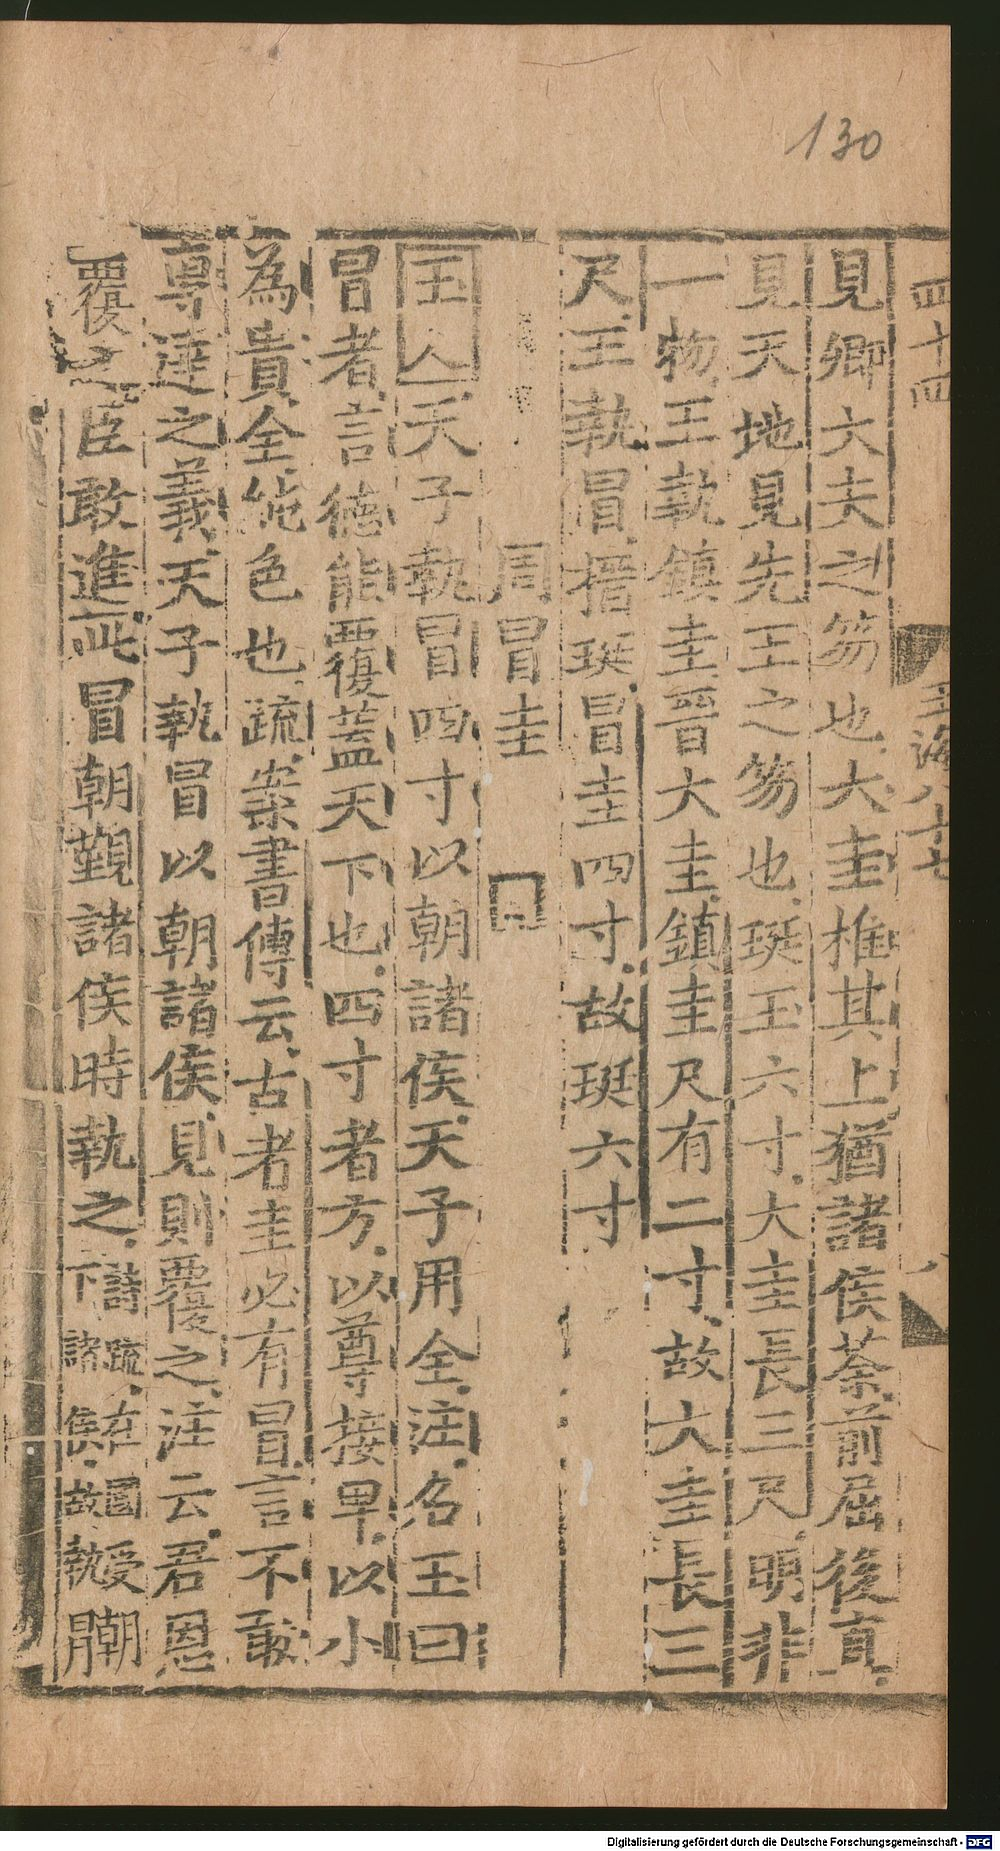 130
四十四
玉海八十七
八
見卿大夫之笏也大圭椎其上猶諸侯荼前屈後直
見天地見先王之笏也珽玉六寸大圭長三尺明非
一物王執鎮圭晉大圭鎮圭尺有二寸故大圭長三
尺王執冒搢珽冒圭四寸故珽六寸
周冒圭
玉人天子執冒四寸以朝諸侯天子用全注名玉曰
冒者言德能覆蓋天下也四寸者方以尊接卑以小
為貴全純色也疏案書傳云古者圭必有冒言不敢
專達之義天子執冒以朝諸侯見則覆之注云君恩
覆之臣敢進此冒朝覲諸侯時執之詩疏在國受朝
下諸侯故執冒
Digitalisierung gefördert durch die Deutsche Forschungsgemeinschaft - DFG